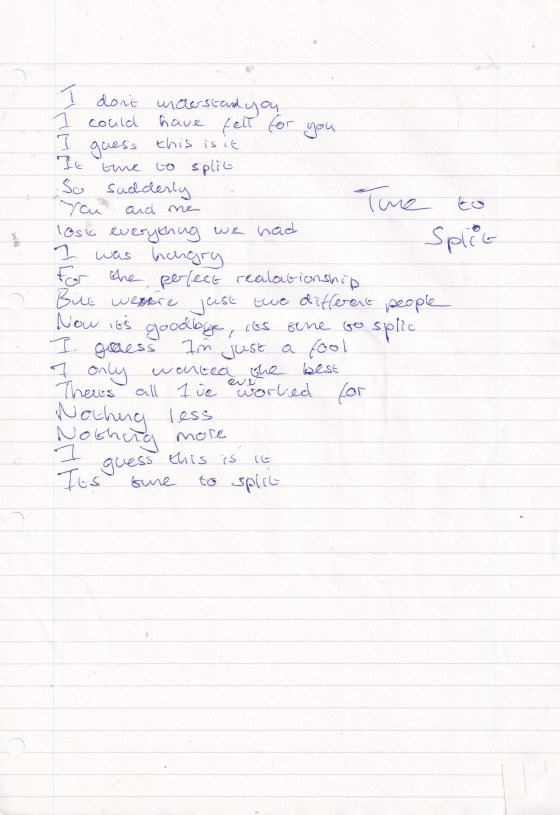 I don't understand you
I could have fell for you
I guess this is it
It time to split
So suddenly
You and me
Time to
lost everything we had
Split
I was hungry
For the perfect realationship
But we're just two different people
Now it's goodbye, its time to split
I guess I'm just a fool
I only wanted the best
Thats all I've ever worked for
Nothing less
Nothing more
I guess this is it
Its time to split